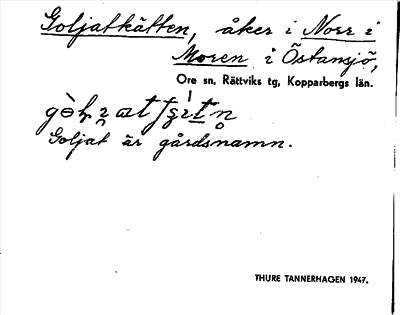 Goljatkätten, åker i Norr i
Moren i Östansjö,
Ore sn, Rättviks tg, Kopparbergs län.
Goljat är gårdsnamn.
THURE TANNERHAGEN 1947.